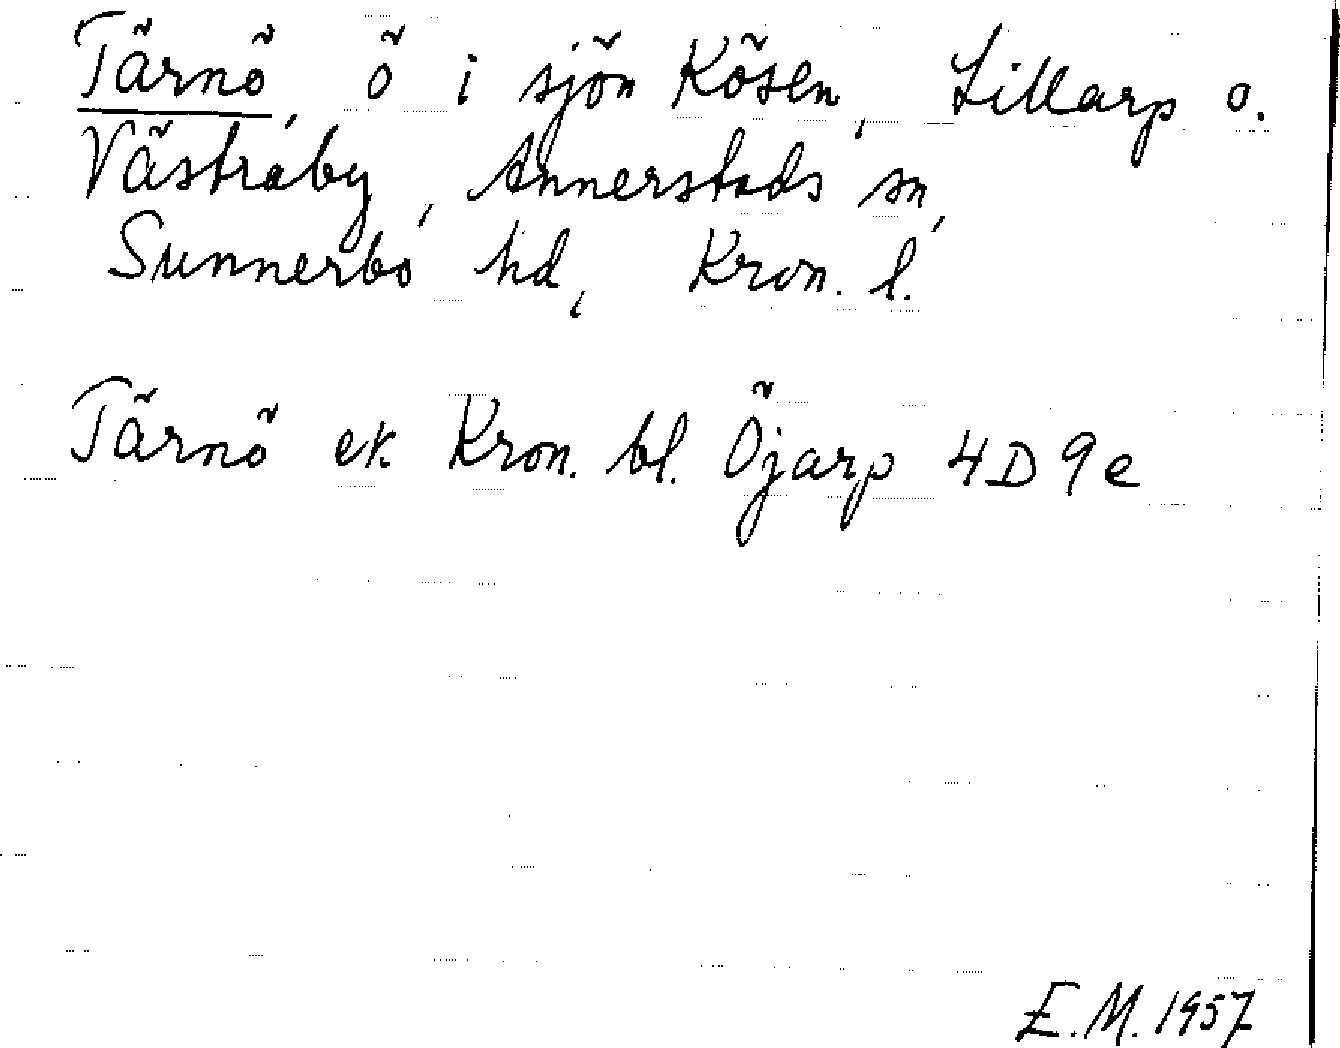 Tärnö, ö i sjön Kösen, Lillarp o.
Västraby, Annerstads sn,
Sunnerbo hd, Kron. l.
Tärnö ek Kron. bl. Öjarp 4D 9e
E.M. 1957